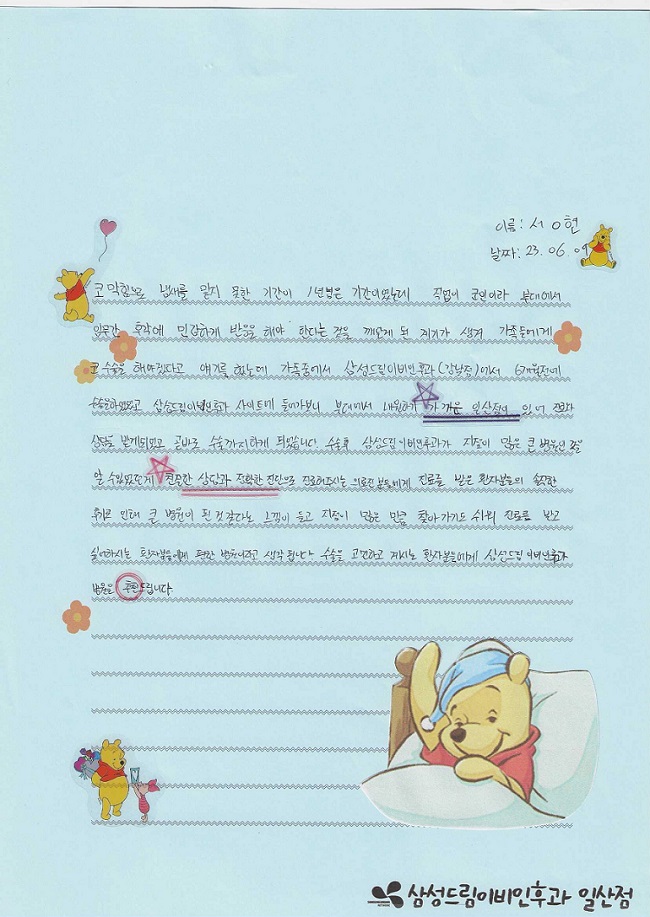 이름: 서ㅇ현
날짜: 23. 06. 09
코막힘으로 냄새를 맡지 못한 기간이 1년넘은 기간이였는데 직업이 군인이라 부대에서
임무간 후각에 민감하게 반응을 해야 한다는 걸을 깨닫게 된 계기가 생겨 가족들에게
코수술을 해야겠다고 얘기를 했는데 가족중에서 삼성드림이비인후과(강남점)에서 6개월전에
수술을하였었고 삼성드림이비인후과 사이트에 들어가보니 부대에서 내원하기 가까운 일산점이 있어 진료와
상담을 받게되었고 곧바로 수술까지하게 되었습니다 수술후 삼성드림이비인후과가 지점이 많은 큰 병원인 것을
알 수있었는데 친절한 상담과 정확한 진단으로 진료해주시는 의료진분들에게 진료를 받은 환자분들의 솔직한
후기로 인해 큰 병원이 된 것 같다는 느낌이 들고 지점이 많은 만큼 찾아가기도 쉬워 진료를 받고
싶어하시는 환자분들에게 편한 병원이라고 생각 됩니다 수술을 고민하고 계시는 환자분들에게 삼성드림이비인후과
병원을 추천드립니다
삼성드림이비인후과 일산점